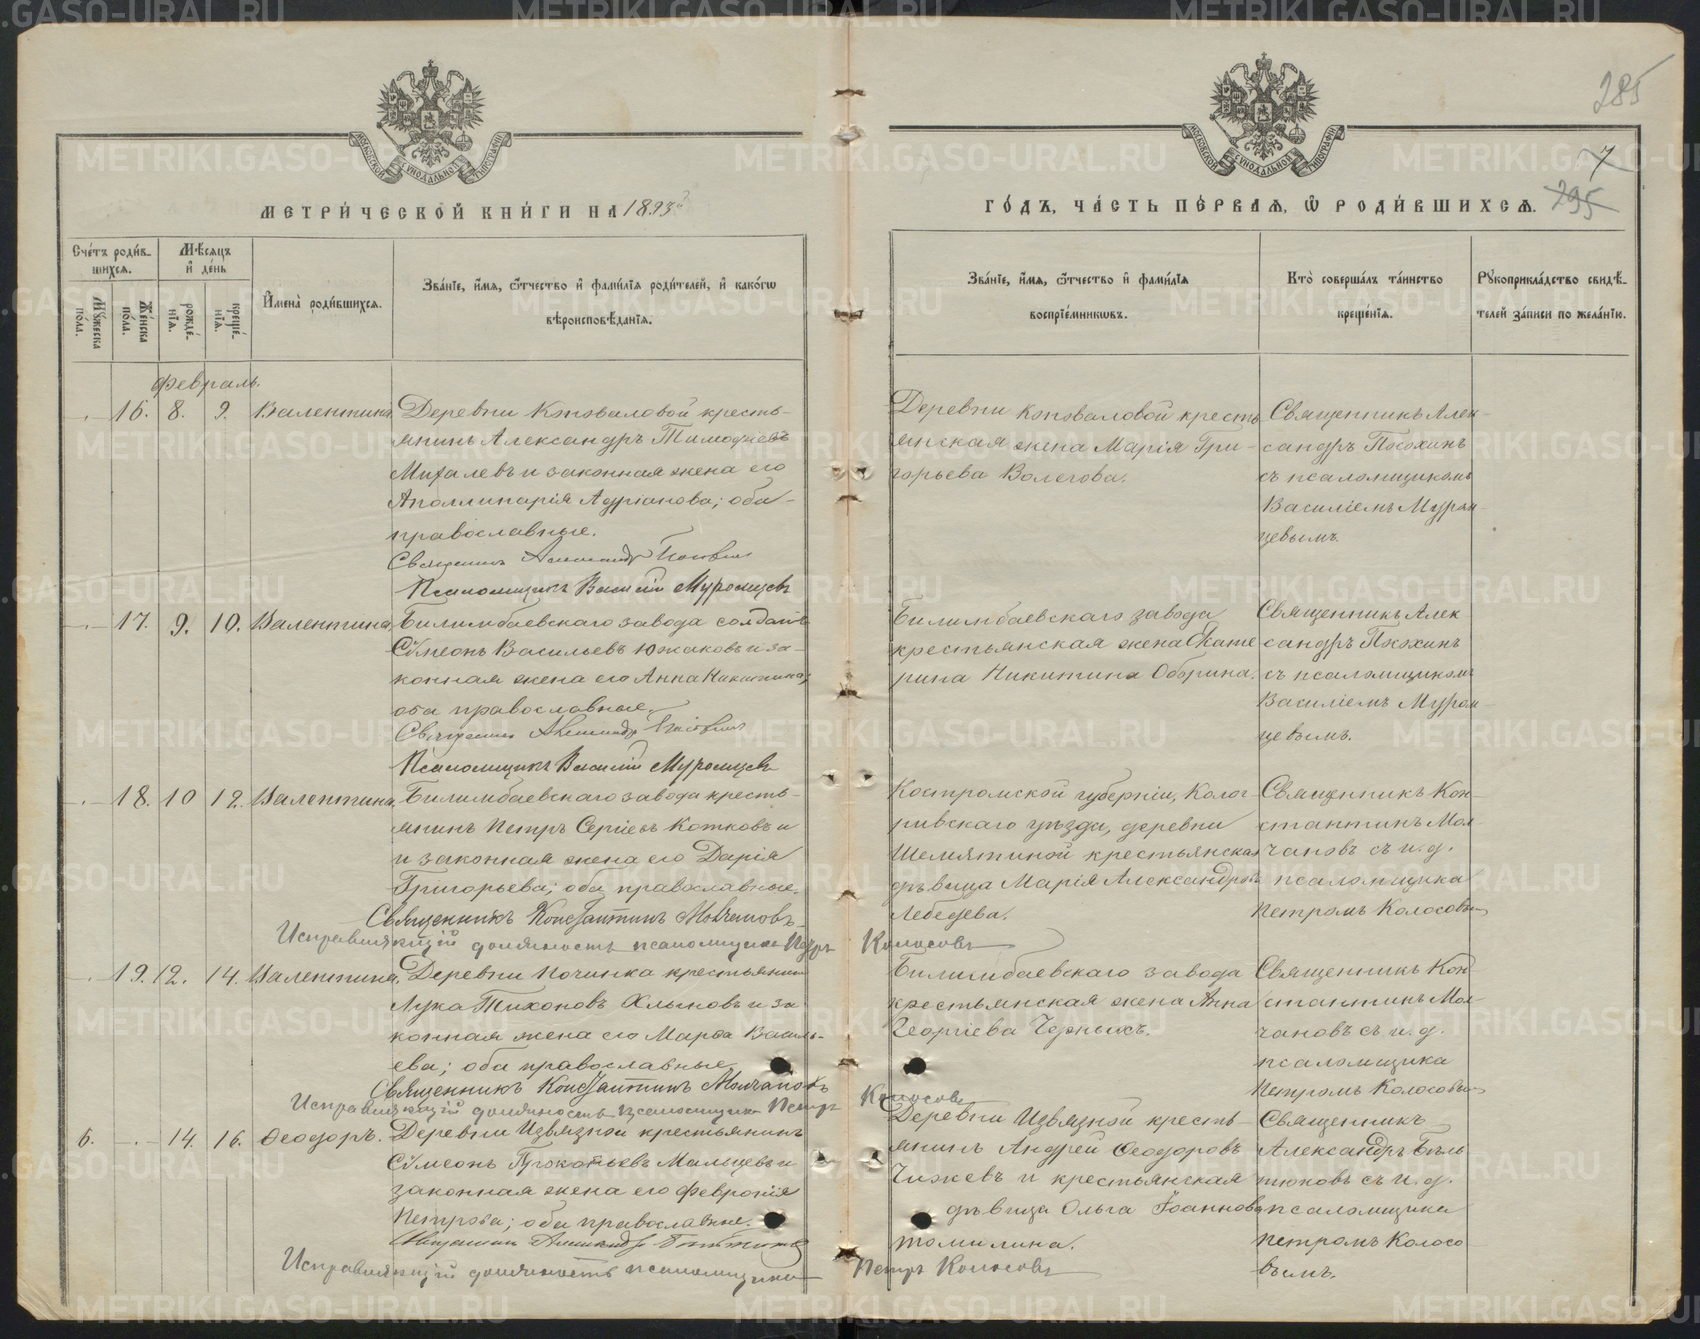 285
7
295
МЕТРИ́ЧЕСКОЙ КНИ́ГИ НА 1893й
ГО́ДЪ, ЧА́СТЬ ПЕ́РВАѦ, Ѡ РОДИ́ВШИХСѦ.
Сче́тъ роди́в-
шихсѧ.
Мѣ́сѧцъ
и҆ де́нь
Мꙋ́жеска
по́ла.
Же́нска
по́ла.
рожде́-
нїѧ.
креще́-
нїѧ.
И҆мена̀ роди́вшихсѧ.
Зва́нїе, и҆́мѧ, ѻ҆́тчество и҆ фами́лїѧ роди́телей, и҆ како́гѡ
вѣроисповѣ́данїѧ.
Зва́нїе, и҆́мѧ, ѻ҆́тчество и҆ фами́лїѧ
воспрїе́мникѡвъ.
Кто̀ соверша́лъ та́инство
креще́нїѧ.
Рꙋкоприкла́дство свидѣ́-
телей за́писи по жела́нїю.
Февраль.
16. 8. 9. Валентина
Деревни Коноваловой кресть-
янинъ Александръ Тимофеевъ
Михалевъ и законная жена его
Аполлинарія Адріанова; оба
православные.
Священникъ Александръ
Псаломщикъ Василій Муромцевъ
Деревни Коноваловой кресть
янская жена Марія Гри-
горьева Волегова.
Священникъ Алек-
сандръ Посохинъ
съ псаломщикомъ
Василіемъ Муром-
цевымъ.
17. 9. 10. Валентина,
Билимбаевскаго завода солдатъ
Сѵмеонъ Васильевъ Южаковъ и за-
конная жена его Анна Никитина;
оба православные.
Священникъ Александръ
Псаломщикъ Василій Муромцевъ
Билимбаевскаго завода
крестьянская жена Екате
рина Никитина Оборина.
Священникъ Алек
сандръ Посохинъ
съ псаломщикомъ
Василіемъ Муром-
цевымъ.
18. 10 12. Валентина,
Билимбаевскаго завода кресть-
янинъ Петръ Сергіевъ Котковъ и
и законная жена его Дарія
Григорьева; оба православные.
Священникъ Константинъ Молчановъ
Исправляющій должность псаломщика Петръ Колосовъ
Костромской губерніи, Колог-
ривскаго уѣзда, деревни
Шемятиной крестьянская
дѣвица Марія Александрова
Лебедева.
Священникъ Кон-
стантинъ Мол-
чановъ съ и. д.
псаломщика
Петромъ Колосовым
19. 12. 14. Валентина,
Деревни Починка крестьянин
Лука Тихоновъ Хлыновъ и за
конная жена его Марѳа Василь-
ева; оба православные.
Священникъ Константинъ Молчановъ
Исправляющій должность псаломщика Петръ Колосовъ
Билимбаевскаго завода
крестьянская жена Анна
Георгіева Черныхъ.
Священникъ Кон
стантинъ Мол-
чановъ съ и. д.
псаломщика
Петромъ Колосовым
6. 14. 16. Ѳеодоръ.
Деревни Извязной крестьянинъ
Сѵмеонъ Прокопьевъ Мальцевъ и
законная жена его Февронія
Петрова; оба православные.
Священникъ Александръ
Исправляющій должность псаломщика Петръ Колосовъ
Деревни Извязной кресть-
янинъ Андрей Ѳеодоровъ
Чижевъ и крестьянская
дѣвица Ольга Іоаннова
Томилина.
Священникъ
Александръ Бѣль
тюковъ съ и. д.
псаломщика
Петромъ Колосо
вымъ.